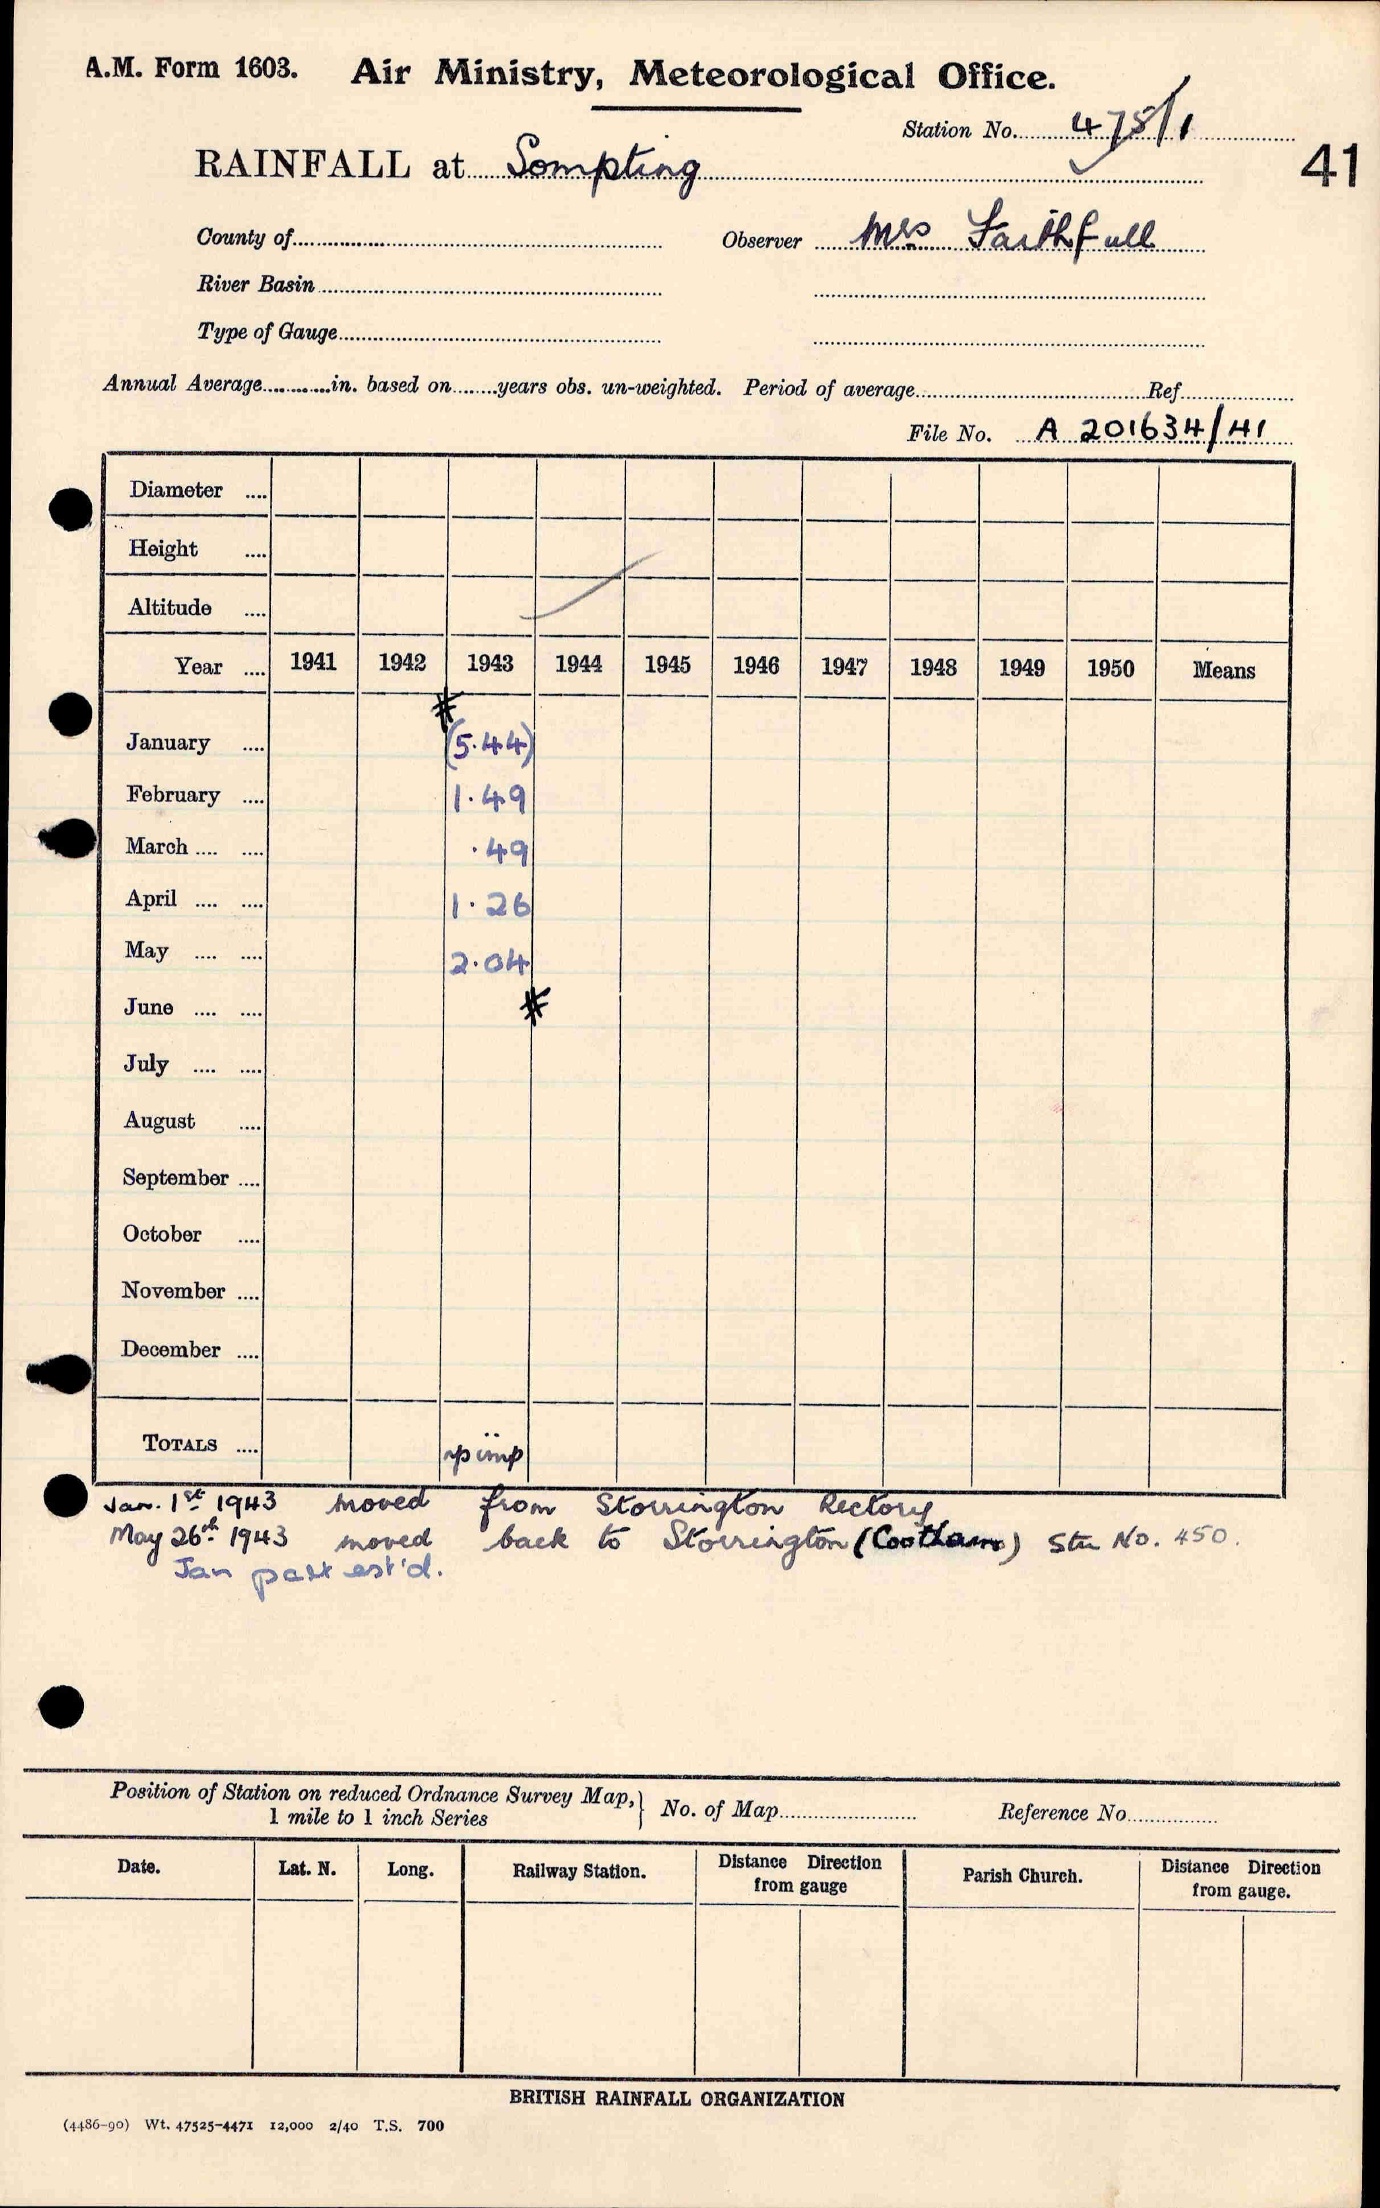 A.M. Form 1603. Air Ministry, Meteorological Office.
Station No. 475/1
41
RAINFALL at Sompting
County of Observer Mrs Faithfull
River Basin
Type of Gauge
Annual Average in. based on years obs. un-weighted. Period of average Ref
File No. A 201634/41
Diameter
Height
Altitude
Year 1941 1942 1943 1944 1945 1946 1947 1948 1949 1950 Means
January (5.44)
February 1.49
March .49
April 1.26
May 2.04
June
July
August
September
October
November
December
TOTALS
Jan. 1st 1943 moved from Storrington Rectory
May 26th 1943 moved back to Storrington (Cootham) Stn No. 450.
Jan part est'd.
Position of Station on reduced Ordnance Survey Map, } No. of Map Reference No
1 mile to 1 inch Series
Date. Lat. N. Long. Railway Station. Distance Direction from gauge Parish Church. Distance Direction from gauge.
BRITISH RAINFALL ORGANIZATION
(4486-90) Wt. 47525-4471 12,000 2/40 T.S. 700